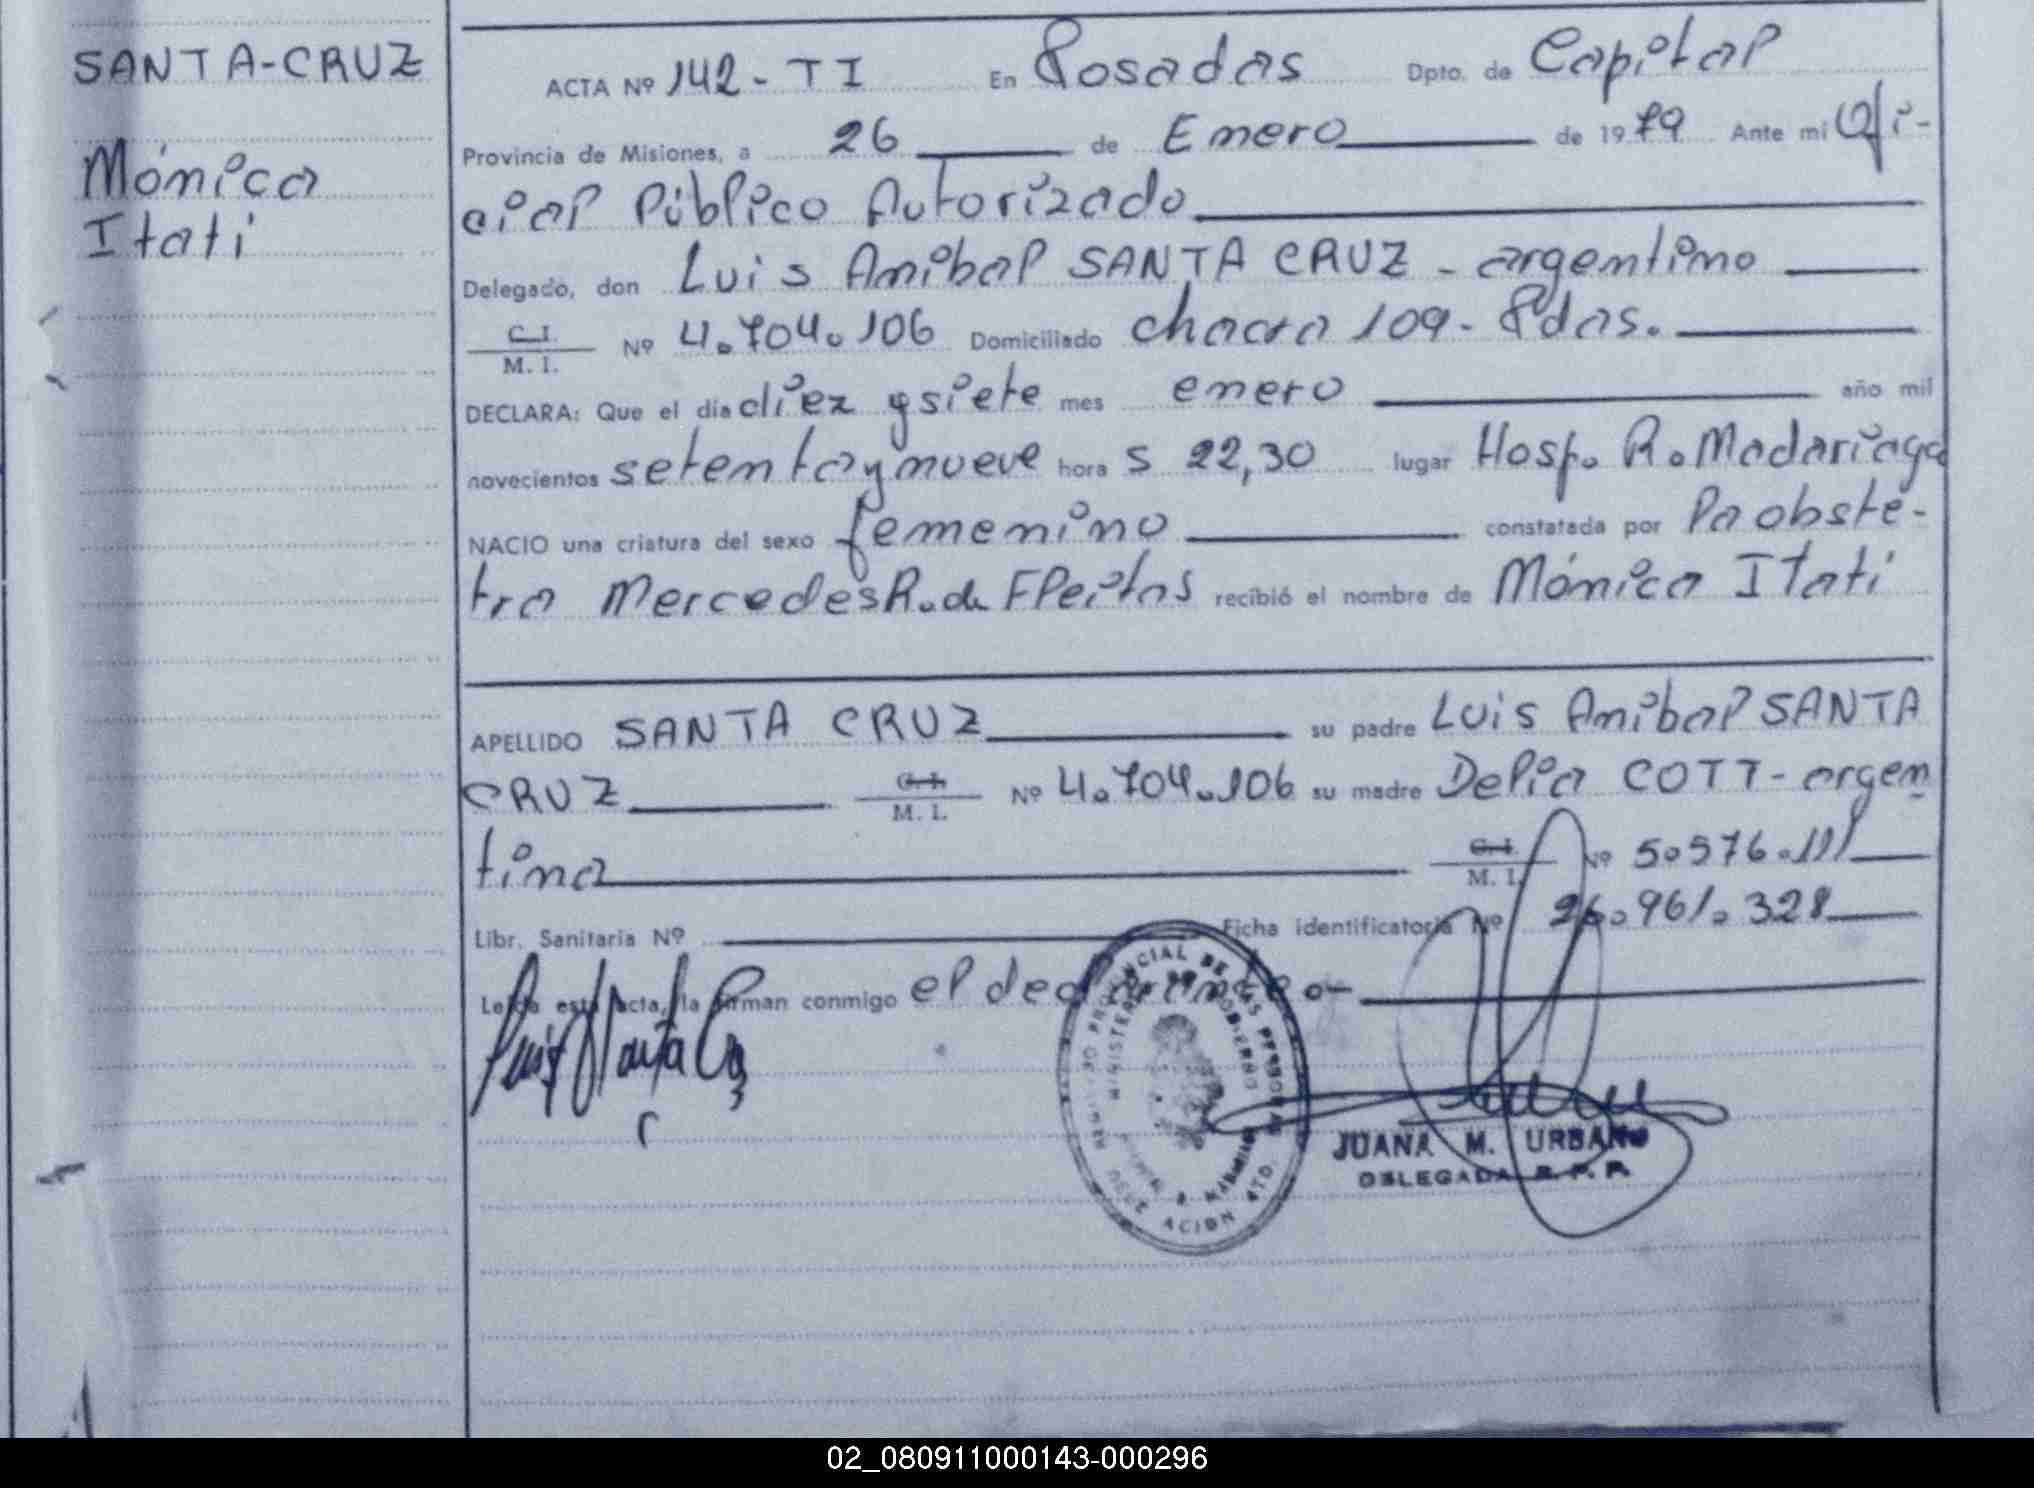 SANTA-CRUZ
Mónica
Itati
ACTA Nº 142 - TI En Posadas Dpto. de Capital
Provincia de Misiones, a 26 de Enero de 1979 Ante mi Ofi-
cial Público Autorizado
Delegado, don Luis Anibal SANTA CRUZ - argentino
C.I. / M. I. Nº 4.704.106 Domiciliado chacra 109 - Pdas.
DECLARA: Que el día diez y siete mes enero año mil
novecientos setenta y nueve hora s 22,30 lugar Hosp. R. Madariaga
NACIO una criatura del sexo femenino constatada por la obste-
tra Mercedes R. de Fleitas recibió el nombre de Mónica Itati
APELLIDO SANTA CRUZ su padre Luis Anibal SANTA
CRUZ C.I. / M. I. Nº 4.704.106 su madre Delia COTT - argen
tina C.I. / M. I. Nº 5.576.111
Libr. Sanitaria Nº Ficha identificatoria Nº 26.961.328
Leída esta acta, la firman conmigo el declarante.-
Luis Santa Cruz
REGISTRO PROVINCIAL DE LAS PERSONAS
MINISTERIO GOBIERNO
JUANA M. URBANO
DELEGADA R. P. P.
02_080911000143-000296